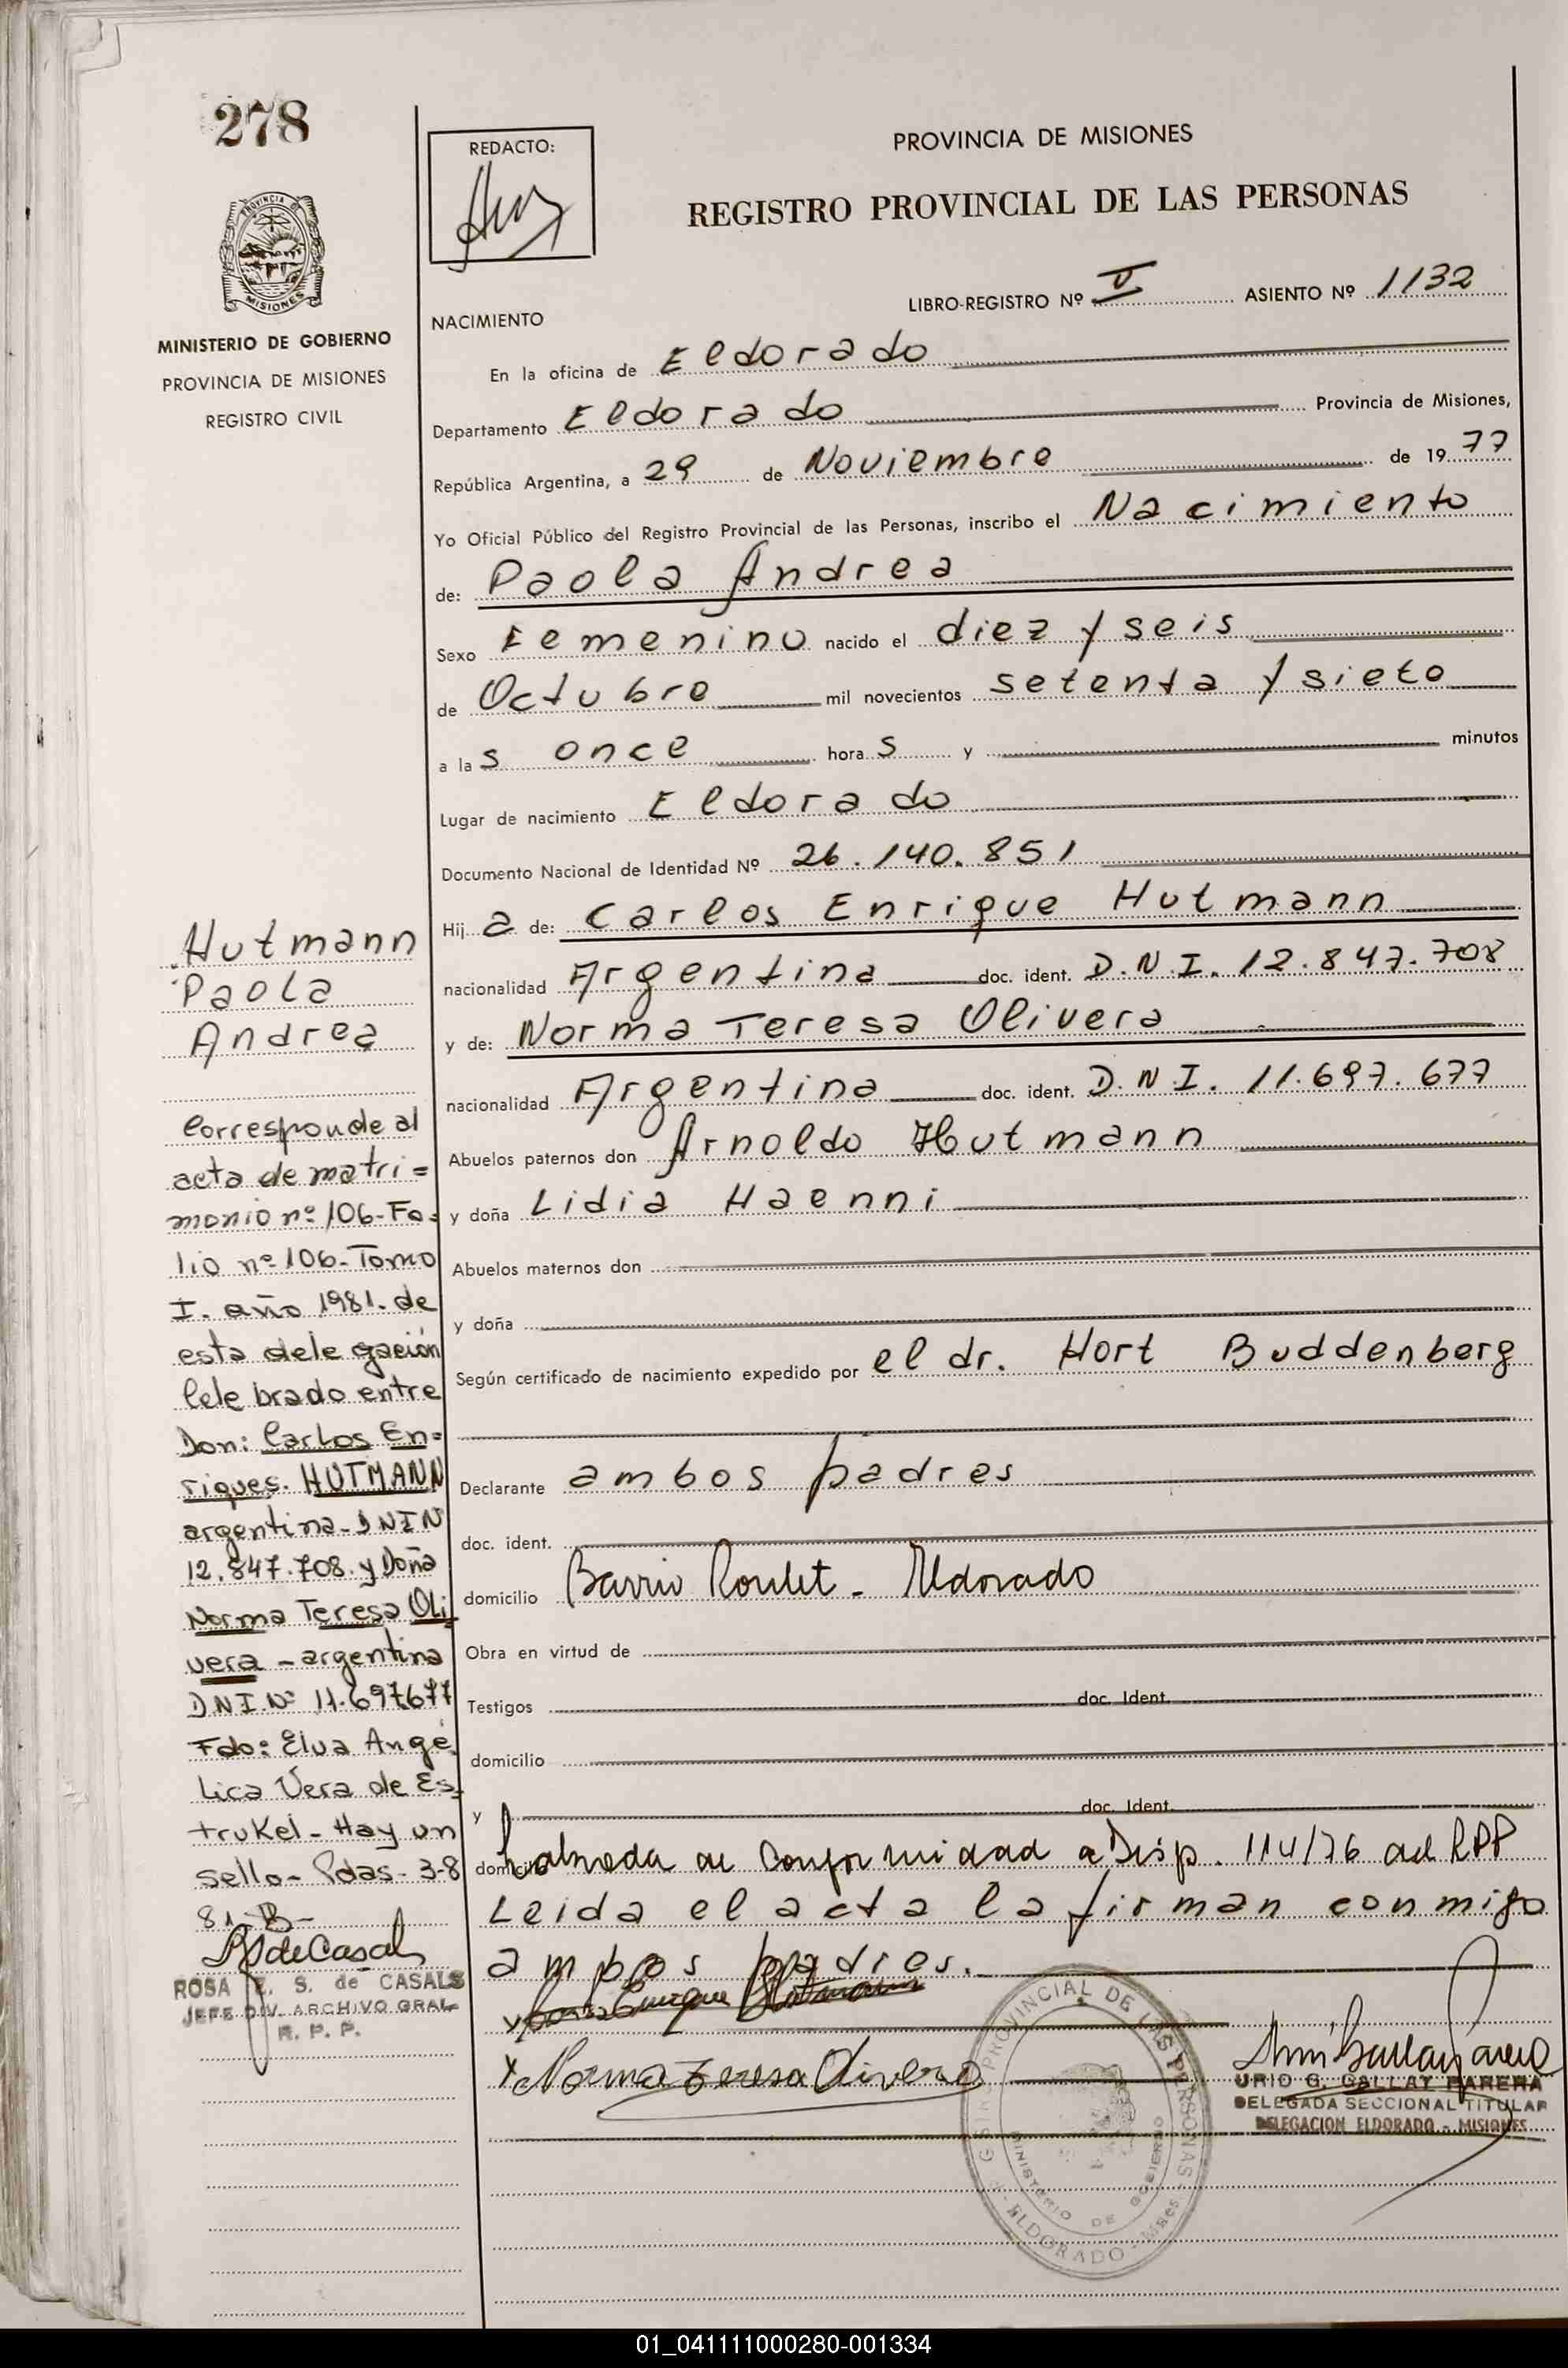 278
PROVINCIA DE MISIONES
MINISTERIO DE GOBIERNO
PROVINCIA DE MISIONES
REGISTRO CIVIL
Hutmann
Paola
Andrea
Corresponde al
acta de matri=
monio nº 106-Fo=
lio nº 106-Tomo
I. año 1981. de
esta delegación
Celebrado entre
Don: Carlos En=
riques. HUTMANN
argentina-DNIN
12.847.708. y Doña
Norma Teresa Oli=
vera - argentina
DNI.Nº 11.697677
Fdo: Elva Angé
lica Vera de Es=
trukel - Hay un
sello- Pdas-3-8
81-
ROSA E. S. de CASALS
JEFE DIV. ARCHIVO GRAL
R. P. P.
REDACTO:
PROVINCIA DE MISIONES
REGISTRO PROVINCIAL DE LAS PERSONAS
LIBRO-REGISTRO Nº V ASIENTO Nº 1132
NACIMIENTO
En la oficina de Eldorado
Departamento Eldorado Provincia de Misiones,
República Argentina, a 29 de Noviembre de 1977
Yo Oficial Público del Registro Provincial de las Personas, inscribo el Nacimiento
de: Paola Andrea
Sexo Femenino nacido el diez y seis
de Octubre mil novecientos setenta y siete
a las once horas y minutos
Lugar de nacimiento Eldorado
Documento Nacional de Identidad Nº 26.140.851
Hija de: Carlos Enrique Hutmann
nacionalidad Argentina doc. ident. D.N.I. 12.847.708
y de: Norma Teresa Olivera
nacionalidad Argentina doc. ident. D.N.I. 11.697.677
Abuelos paternos don Arnoldo Hutmann
y doña Lidia Haenni
Abuelos maternos don
y doña
Según certificado de nacimiento expedido por el dr. Hort Buddenberg
Declarante ambos padres
doc. ident.
domicilio Barrio Roulet - Eldorado
Obra en virtud de
Testigos doc. Ident.
domicilio
y doc. Ident.
domicilio Labrada de Conformidad a Disp. 114/76 del RPP
Leida el acta la firman conmigo
ambos padres.
x Carlos Enrique Hutmann
x Norma Teresa Olivera
REGISTRO PROVINCIAL DE LAS PERSONAS
MINISTERIO DE GOBIERNO
ELDORADO - Mnes
URIO G. GALLAY PARERA
DELEGADA SECCIONAL TITULAR
DELEGACION ELDORADO - MISIONES
01_041111000280-001334